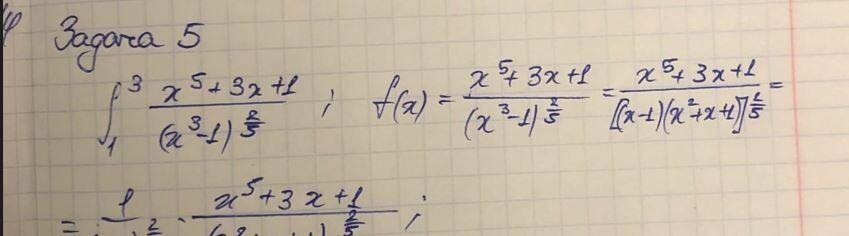 Задача 5
∫₁³ (x⁵+3x+1)/(x³-1)^(2/5) ; f(x) = (x⁵+3x+1)/(x³-1)^(2/5) = (x⁵+3x+1)/[(x-1)(x²+x+1)]^(2/5) =
= 1/ 2 · (x⁵+3x+1)/ ^(2/5) ;